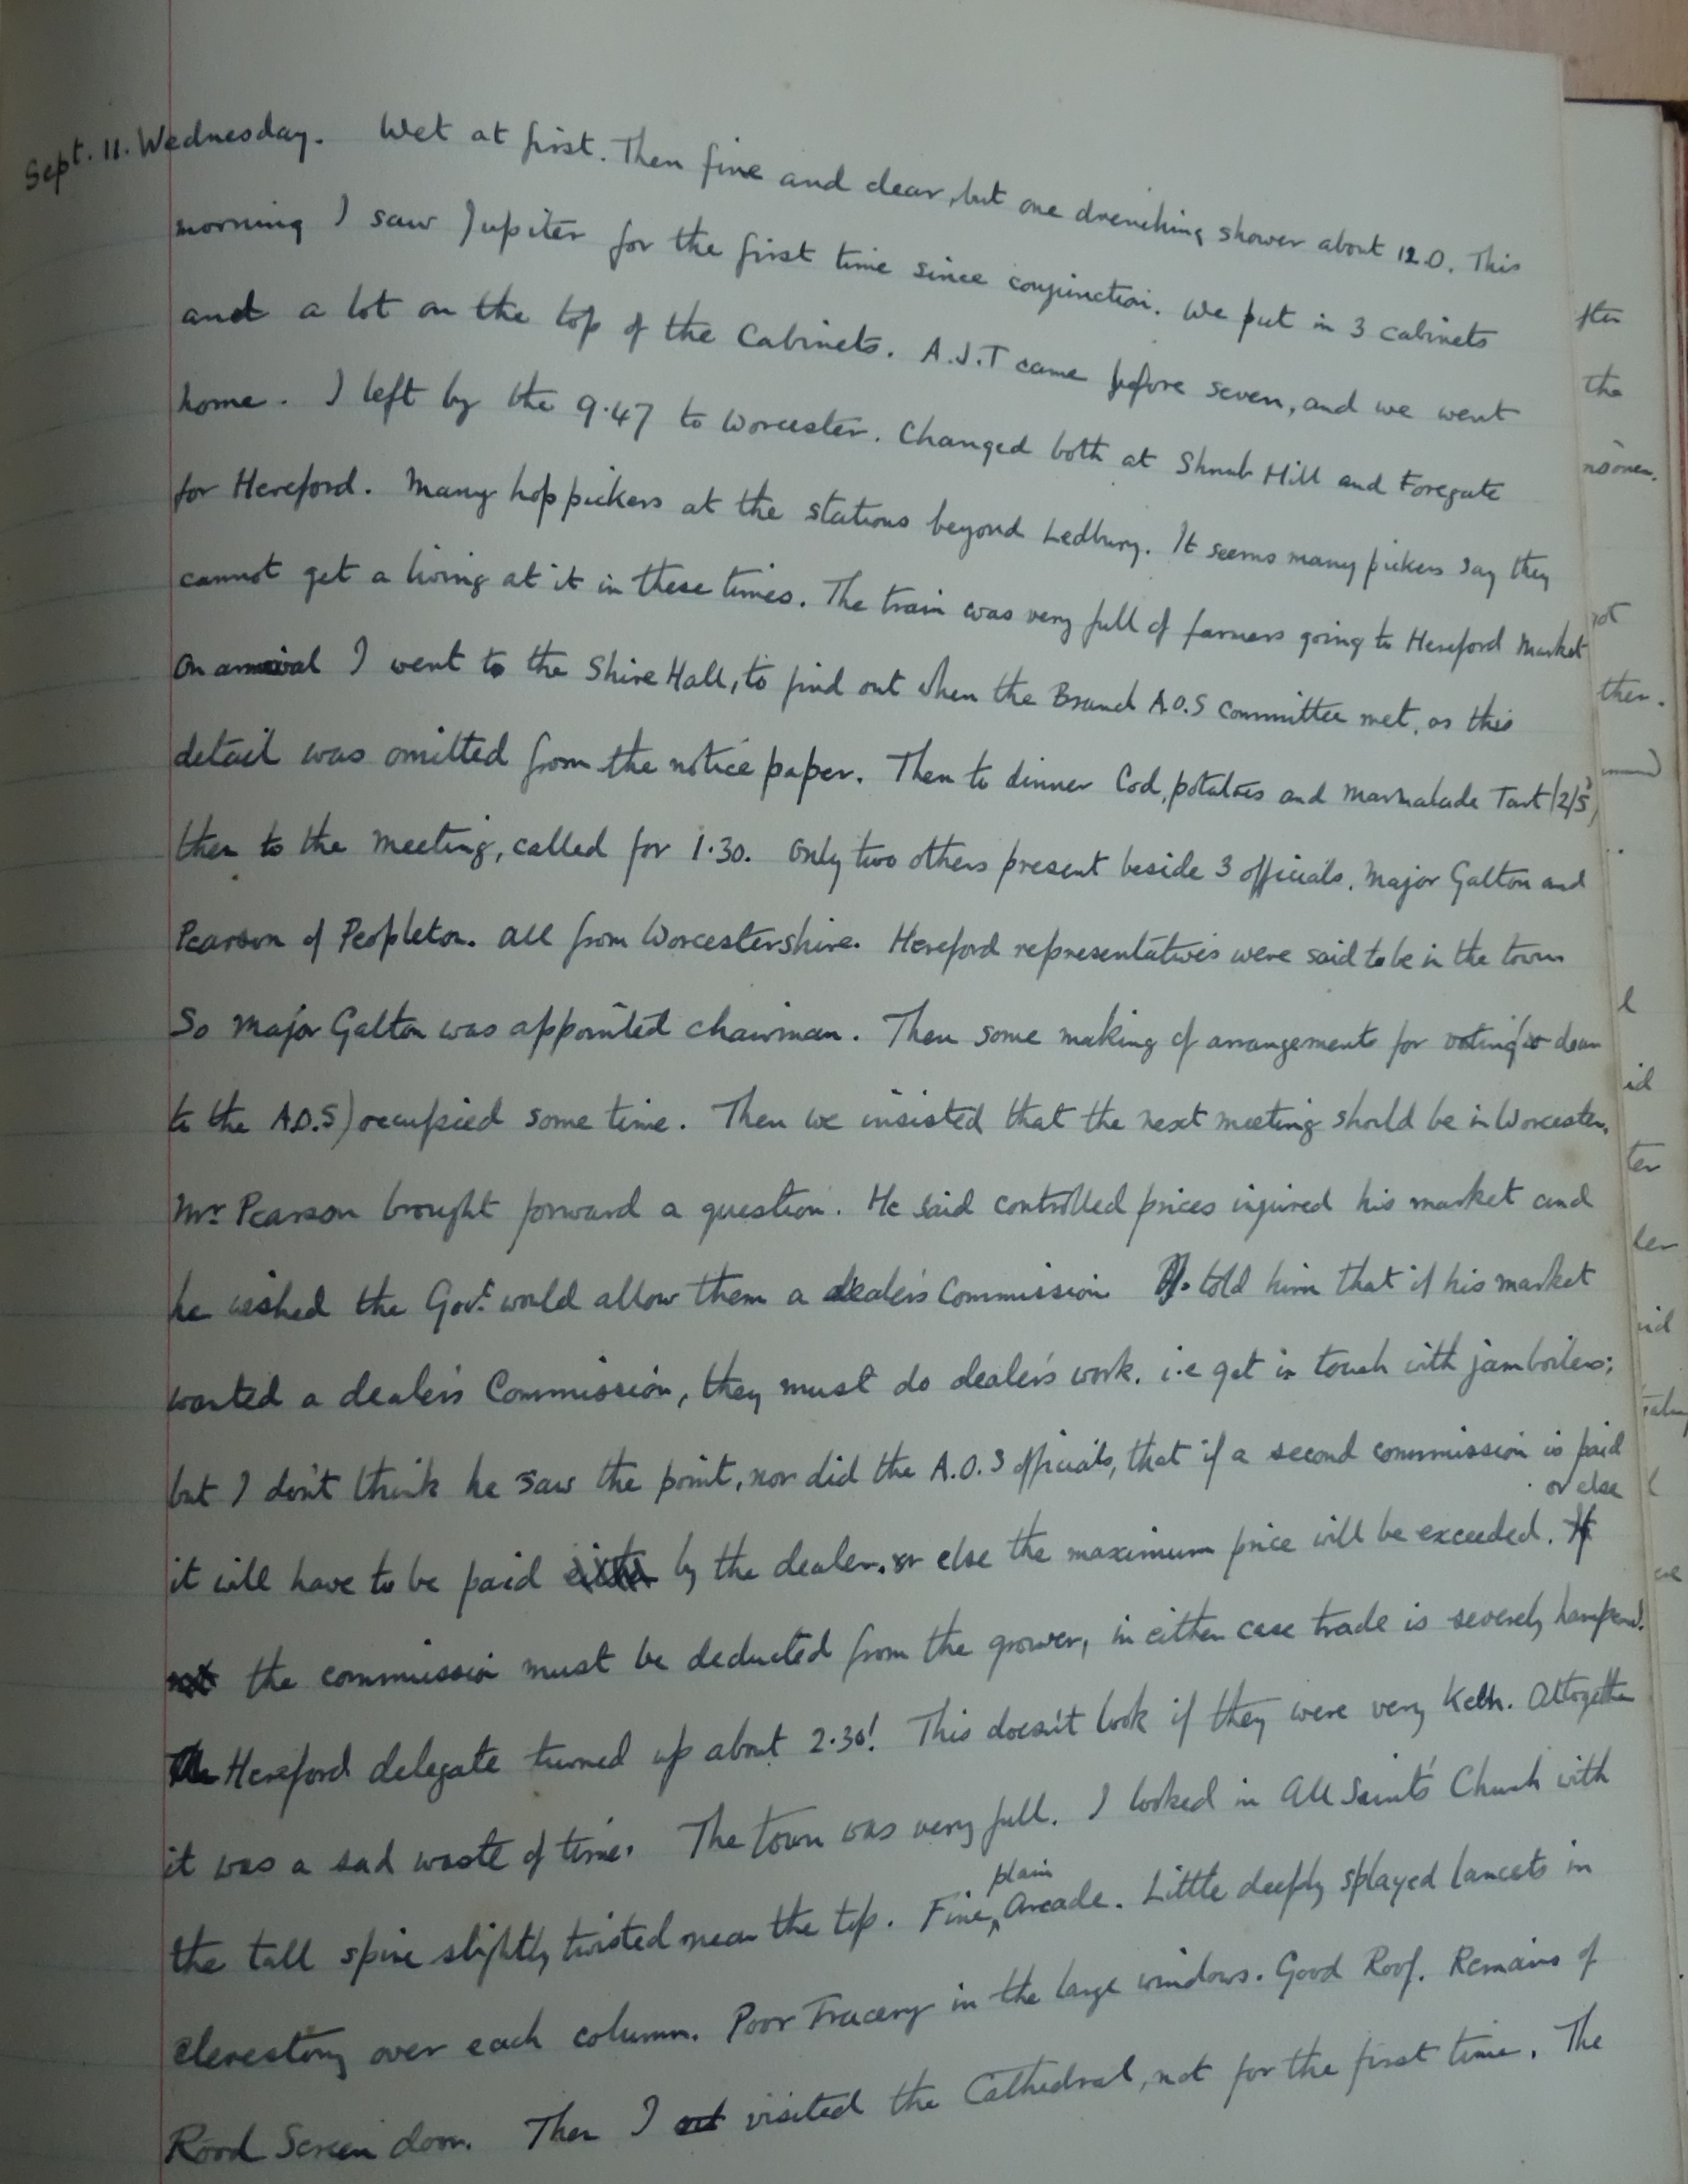 Sept. 11. Wednesday. Wet at first. Then fine and clear, but one drenching shower about 12.0. This
morning I saw Jupiter for the first time since conjunction. We put in 3 cabinets
and a lot on the top of the Cabinets. A.J.T came before seven, and we went
home. I left by the 9.47 to Worcester. Changed both at Shrub Hill and Foregate
for Hereford. Many hop pickers at the stations beyond Ledbury. It seems many pickers say they
cannot get a living at it in these times. The train was very full of farmers going to Hereford Market
On arrival I went to the Shire Hall, to find out when the Branch A.O.S committee met, as this
detail was omitted from the notice paper. Then to dinner Cod, potatoes and Marmalade Tart (2/5)
then to the meeting, called for 1.30. Only two others present beside 3 officials. Major Galton and
Pearson of Peopleton. All from Worcestershire. Hereford representatives were said to be in the town
So Major Galton was appointed chairman. Then some making of arrangements for voting (so dear
to the A.O.S) occupied some time. Then we insisted that the next meeting should be in Worcester.
Mr. Pearson brought forward a question. He said controlled prices injured his market and
he wished the Govt. would allow them a dealer's Commission I told him that if his market
wanted a dealer's Commission, they must do dealer's work. i.e get in touch with jamboilers;
but I don't think he saw the point, nor did the A.O.S officials, that if a second commission is paid
it will have to be paid by the dealer. or else the maximum price will be exceeded. or else
the commission must be deducted from the grower, in either case trade is severely hampered.
Hereford delegate turned up about 2.30! This doesn't look if they were very keen. Altogether
it was a sad waste of time. The town was very full. I looked in All Saints' Church with
the tall spire slightly twisted near the top. Fine plain Arcade. Little deeply splayed lancets in
clerestory over each column. Poor Tracery in the large windows. Good Roof. Remains of
Rood Screen door. Then I visited the Cathedral, not for the first time. The
the
ther.
id
ter